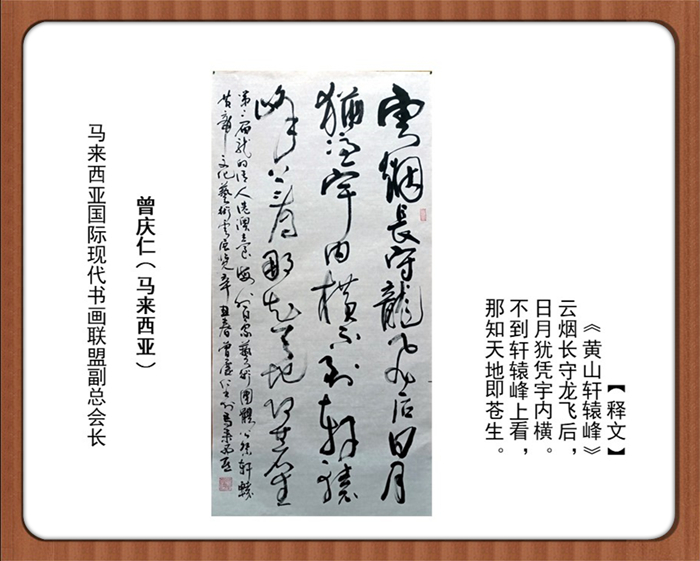 【释文】
《黄山轩辕峰》
云烟长守龙飞后，
日月犹凭宇内横。
不到轩辕峰上看，
那知天地即苍生。
雲烟长守龍飞后日月
猶凭宇内横不到轩辕
峰上看那知天地即苍生
曾庆仁（马来西亚）
马来西亚国际现代书画联盟副总会长